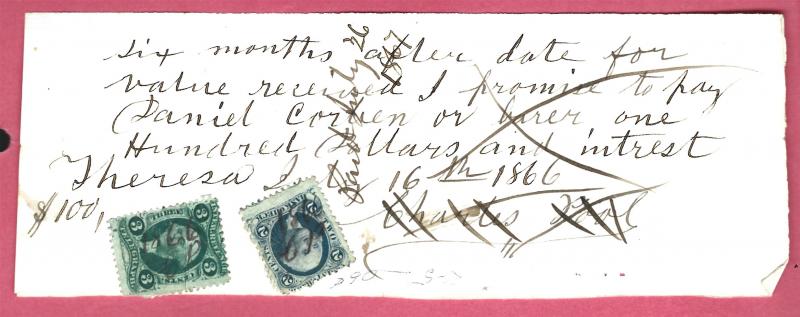 six months after date for
value received I promise to pay
Daniel Corwen or barer one
Hundred Dollars and intrest
Theresa 16th 1866
$100,
Charles Pool
Paid July 26
1867
3 3
3 CENTS 3
2 2
2 CENTS 2